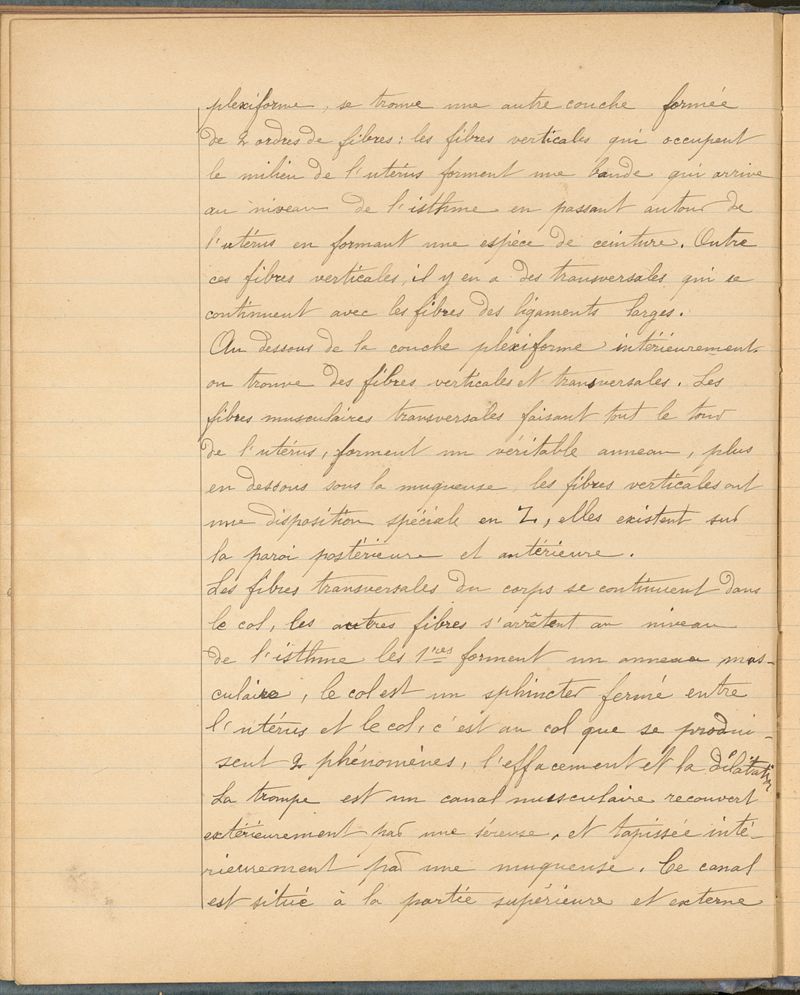 plexiforme, se trouve une autre couche formée
de 2 ordres de fibres : les fibres verticales qui occupent
le milieu de l'utérus forment une bande qui arrive
au niveau de l'isthme en passant autour de
l'utérus en formant une espèce de ceinture. Outre
ces fibres verticales, il y en a des transversales qui se
continuent avec les fibres des ligaments larges.
Au dessous de la couche plexiforme intérieurement
on trouve des fibres verticales et transversales. Les
fibres musculaires transversales faisant tout le tour
de l'utérus, forment un véritable anneau, plus
en dessous sous la muqueuse, les fibres verticales ont
une disposition spéciale en Z, elles existent sur
la paroi postérieure et antérieure.
Les fibres transversales du corps se continuent dans
le col, les autres fibres s'arrêtent au niveau
de l'isthme les 1res forment un anneau mus-
culaire, le col est un sphincter fermé entre
l'utérus et le col, c'est au col que se produi-
sent 2 phénomènes, l'effacement et la dilatation
La trompe est un canal musculaire recouvert
extérieurement par une séreuse, et tapissée inté-
rieurement par une muqueuse. Ce canal
est situé à la partie supérieure et externe